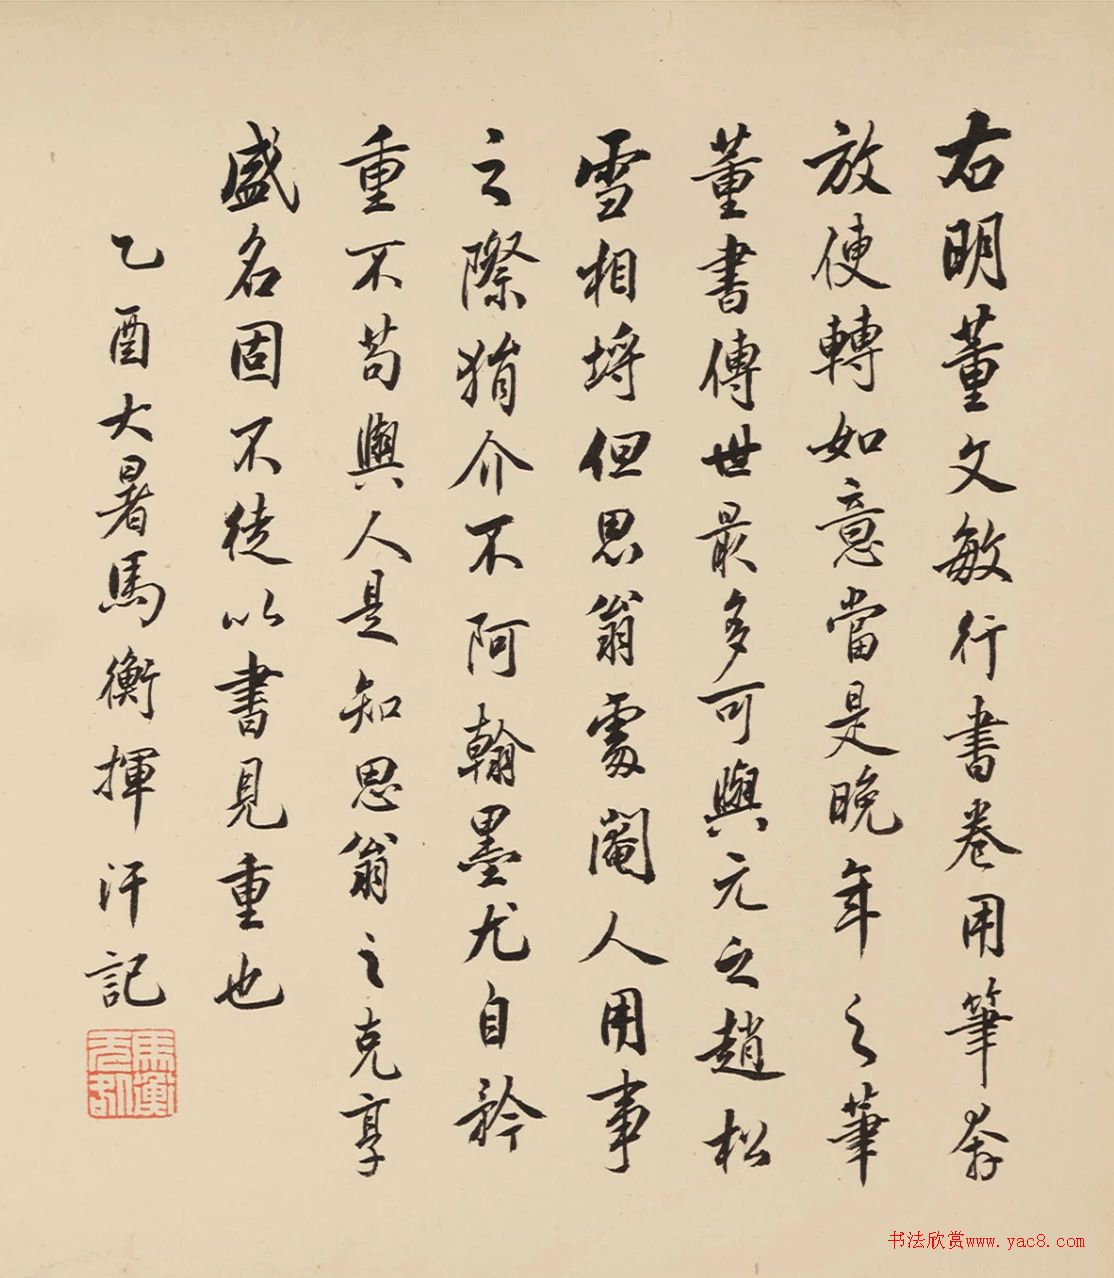 右明董文敏行書卷用筆奔
放使轉如意當是晚年之筆
董書傳世最多可與元之趙松
雪相埒但思翁處閹人用事
之際狷介不阿翰墨尤自矜
重不苟與人是知思翁之克享
盛名固不徒以書見重也
乙酉大暑馬衡揮汗記
馬衡
书法欣赏www.yac8.com